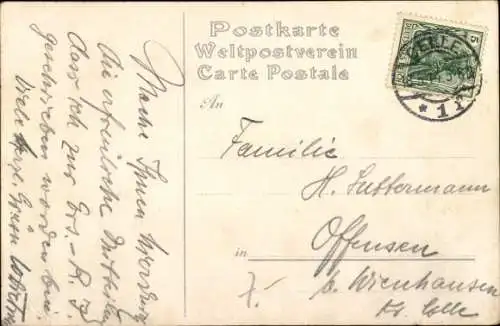 Postkarte
Weltpostverein
Carte Postale
An
Familie
H. Suttermann
in Offensen
b. Wienhausen
Kr. Celle
CELLE
* 1
5
Mache Ihnen
die erfreuliche Mitteilung
dass ich zur Ers.-R.
geschrieben worden bin
Viele Herzl.